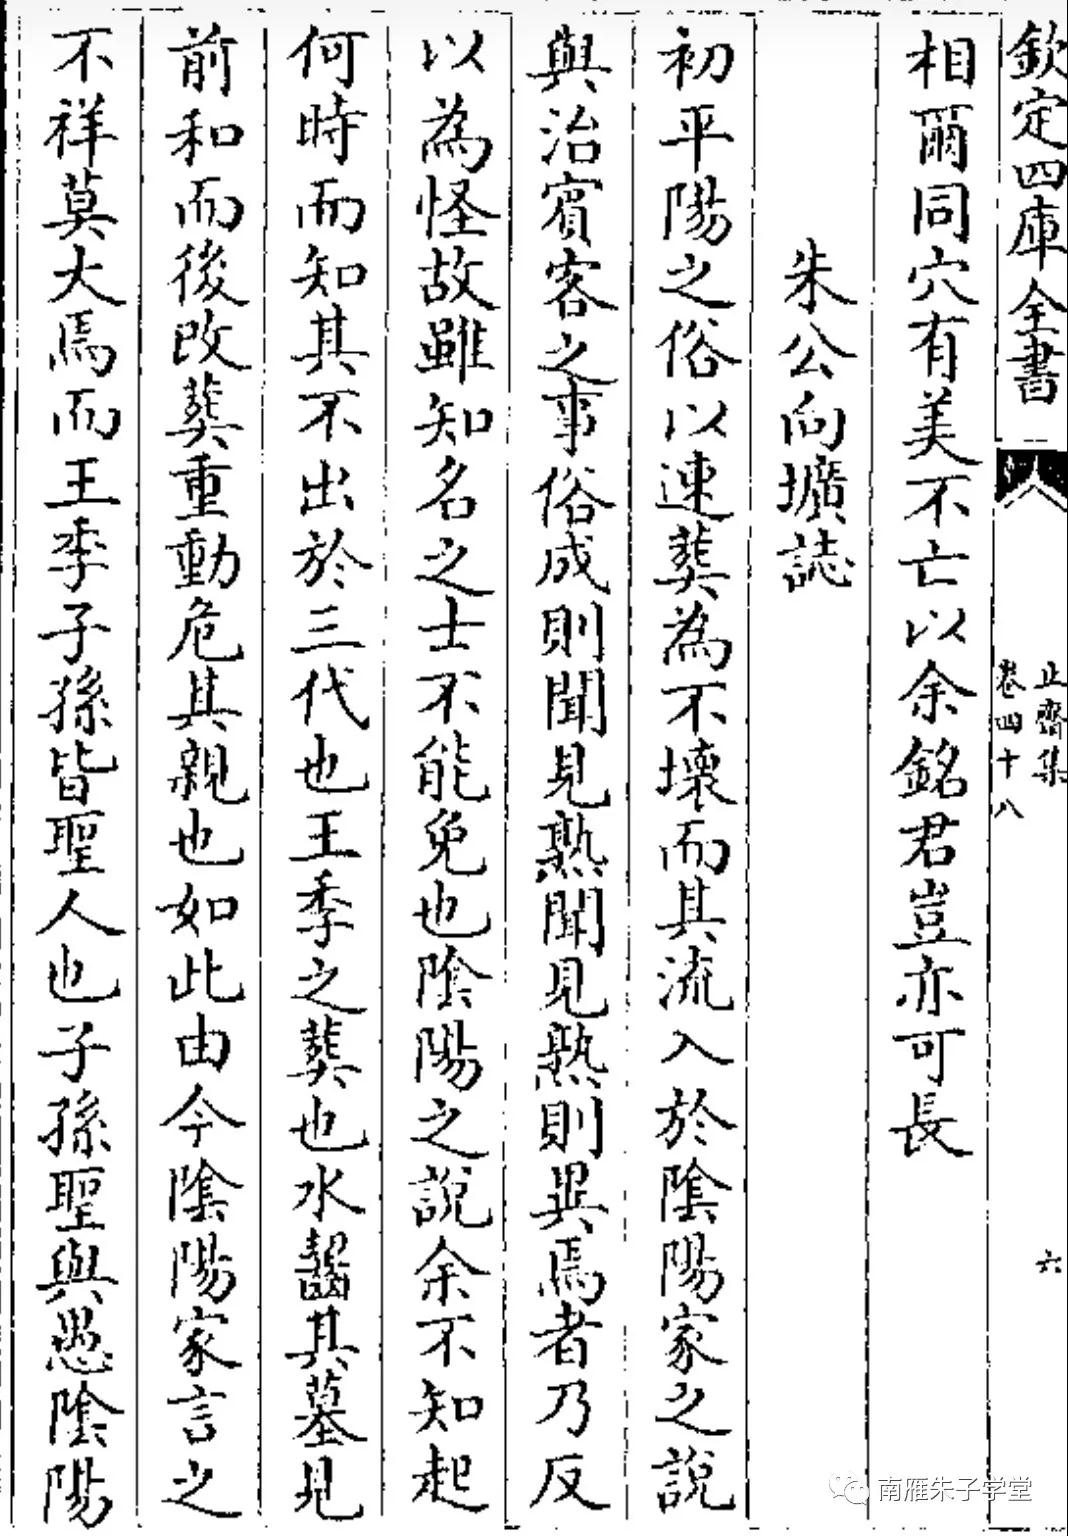 欽定四庫全書
止齋集
卷四十八
六
相爾同穴有美不亡以余銘君豈亦可長
朱公向壙誌
初平陽之俗以速葬為不壞而其流入於陰陽家之說
與治賓客之事俗成則聞見熟聞見熟則異焉者乃反
以為怪故雖知名之士不能免也陰陽之說余不知起
何時而知其不出於三代也王季之葬也水齧其墓見
前和而後改葬重動危其親也如此由今陰陽家言之
不祥莫大焉而王季子孫皆聖人也子孫聖與愚陰陽
南雁朱子学堂